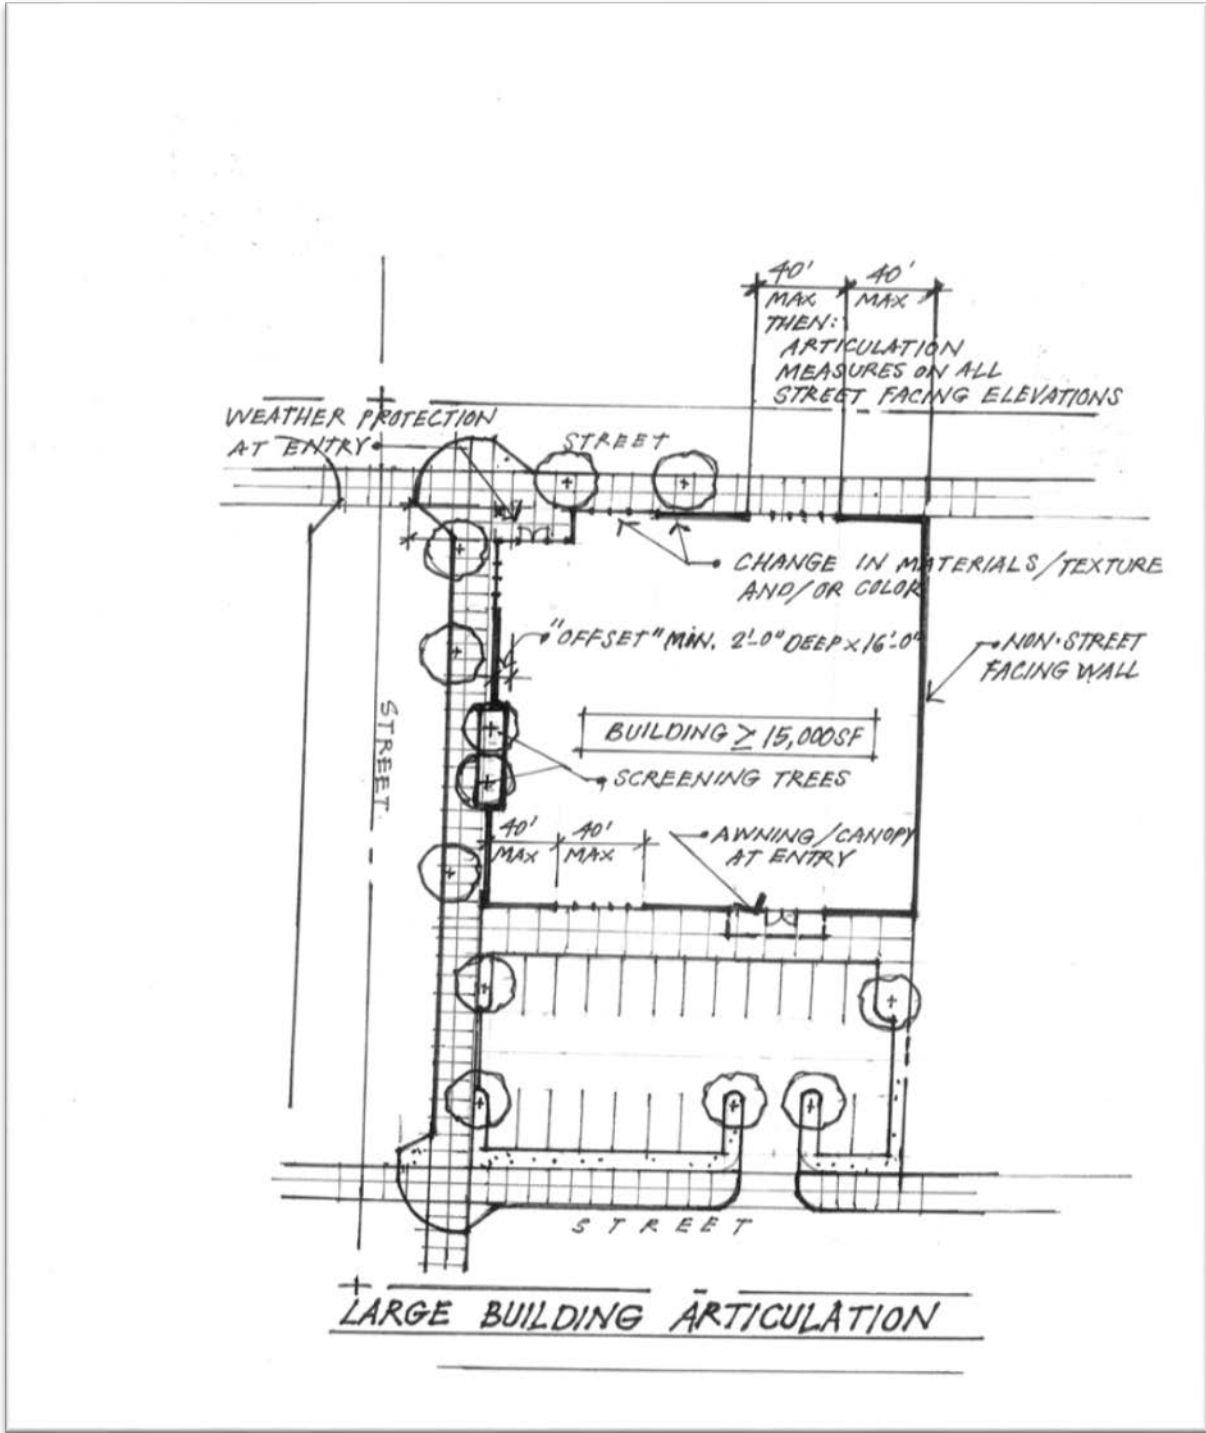 40' 40'
MAX MAX
THEN:
ARTICULATION
MEASURES ON ALL
STREET FACING ELEVATIONS
WEATHER PROTECTION
AT ENTRY
STREET
CHANGE IN MATERIALS/TEXTURE
AND/OR COLOR
"OFFSET" MIN. 2'-0" DEEP x 16'-0"
NON-STREET
FACING WALL
STREET
BUILDING ≥ 15,000SF
SCREENING TREES
40' 40'
MAX MAX
AWNING/CANOPY
AT ENTRY
STREET
LARGE BUILDING ARTICULATION